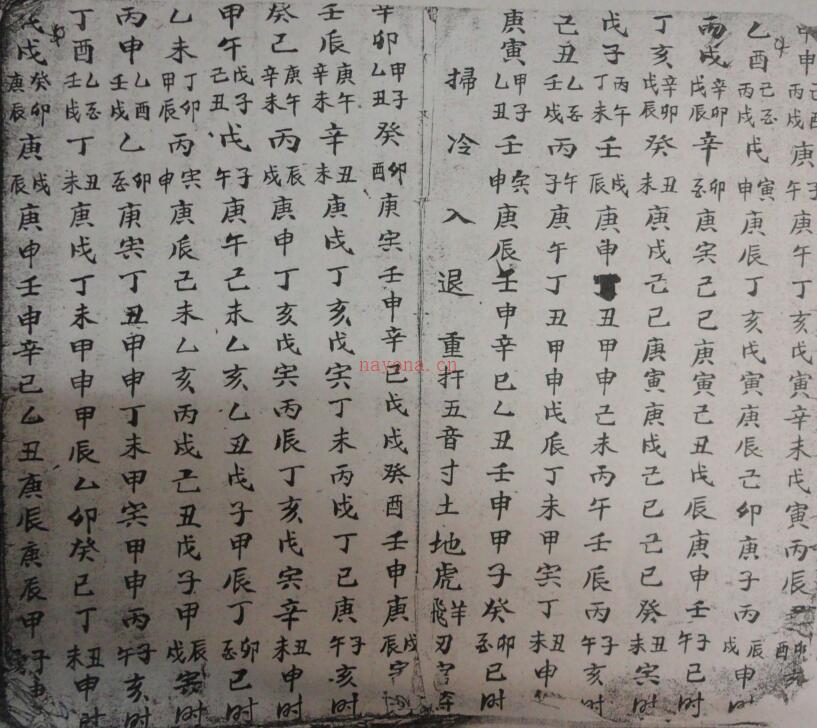 申丙戌庚子午庚午丁亥戊寅辛未戊寅丙辰
乙酉己丑丙戌戊寅申庚辰丁亥戊寅庚辰己卯庚子丙辰戌申时
丙戌辛卯戊辰辛卯酉庚寅己巳庚寅己丑戊辰庚申壬子午巳时
丁亥辛卯戊辰癸丑未庚戌己巳庚寅庚戌己巳己巳癸丑未寅时
戊子丙午丁未壬戌辰庚申丁丑甲申己未丙午壬辰丙子午亥时
己丑乙丑壬戌丙午子庚午丁丑甲申戊辰丁未甲寅丁丑未申
庚寅甲子乙丑壬寅申庚辰壬申辛巳乙丑壬申甲子癸卯酉巳时
掃冷入退重扦五音寸土地虎羊飛刃字
辛卯甲子乙丑癸卯酉庚寅壬申辛巳戊戌癸酉壬申庚戌辰
壬辰庚午辛未辛丑未庚戌丁亥戊寅丁未丙戌丁巳庚子午亥时
癸巳庚午辛未丙辰戌庚申丁亥戊寅丙辰丁亥戊寅辛丑未申时
甲午戊子己丑戊子午庚午己未乙亥乙丑戊子甲辰丁卯酉巳时
乙未丁卯甲辰丙寅申庚辰己未乙亥丙戌己丑戊子甲辰戌寅时
丙申乙酉壬戌乙卯酉庚寅丁丑甲申丁未甲寅甲申丙子午亥时
丁酉乙丑壬戌丁丑未庚戌丁未甲申甲辰乙卯癸巳丁丑未申时
戊戌癸卯庚辰庚戌辰庚申壬申辛巳乙丑庚辰庚辰甲子
nayona.cn